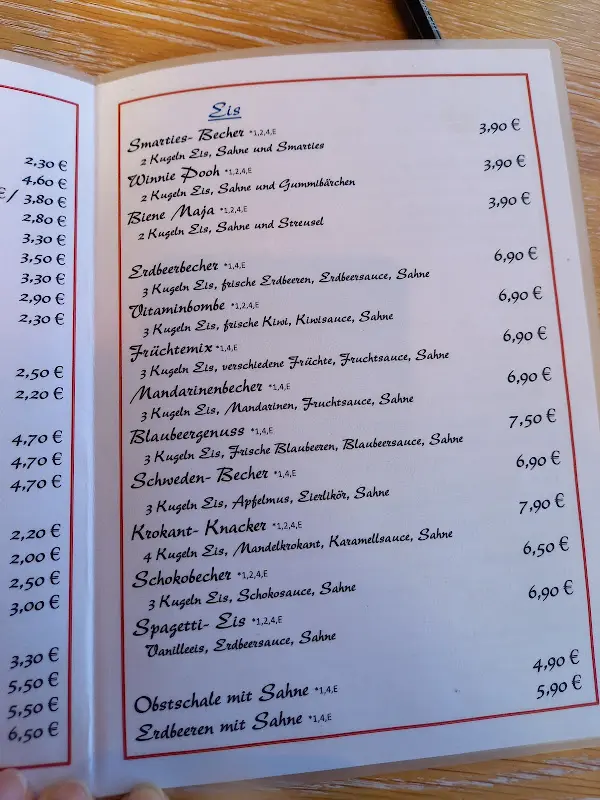 2,30 €
4,60 €
€/ 3,80 €
2,80 €
3,30 €
3,50 €
3,30 €
2,90 €
2,30 €
2,50 €
2,20 €
4,70 €
4,70 €
4,70 €
2,20 €
2,00 €
2,50 €
3,00 €
3,30 €
5,50 €
5,50 €
6,50 €
Eis
Smarties- Becher *1,2,4,E 3,90 €
2 Kugeln Eis, Sahne und Smarties
Winnie Pooh *1,2,4,E 3,90 €
2 Kugeln Eis, Sahne und Gummibärchen
Biene Maja *1,2,4,E 3,90 €
2 Kugeln Eis, Sahne und Streusel
Erdbeerbecher *1,4,E 6,90 €
3 Kugeln Eis, frische Erdbeeren, Erdbeersauce, Sahne
Vitaminbombe *1,2,4,E 6,90 €
3 Kugeln Eis, frische Kiwi, Kiwisauce, Sahne
Früchtemix *1,4,E 6,90 €
3 Kugeln Eis, verschiedene Früchte, Fruchtsauce, Sahne
Mandarinenbecher *1,4,E 6,90 €
3 Kugeln Eis, Mandarinen, Fruchtsauce, Sahne
Blaubeergenuss *1,4,E 7,50 €
3 Kugeln Eis, Frische Blaubeeren, Blaubeersauce, Sahne
Schweden- Becher *1,4,E 6,90 €
3 Kugeln Eis, Apfelmus, Eierlikör, Sahne
Krokant- Knacker *1,2,4,E 7,90 €
4 Kugeln Eis, Mandelkrokant, Karamellsauce, Sahne
Schokobecher *1,2,4,E 6,50 €
3 Kugeln Eis, Schokosauce, Sahne
Spagetti- Eis *1,2,4,E 6,90 €
Vanilleeis, Erdbeersauce, Sahne
Obstschale mit Sahne *1,4,E 4,90 €
Erdbeeren mit Sahne *1,4,E 5,90 €